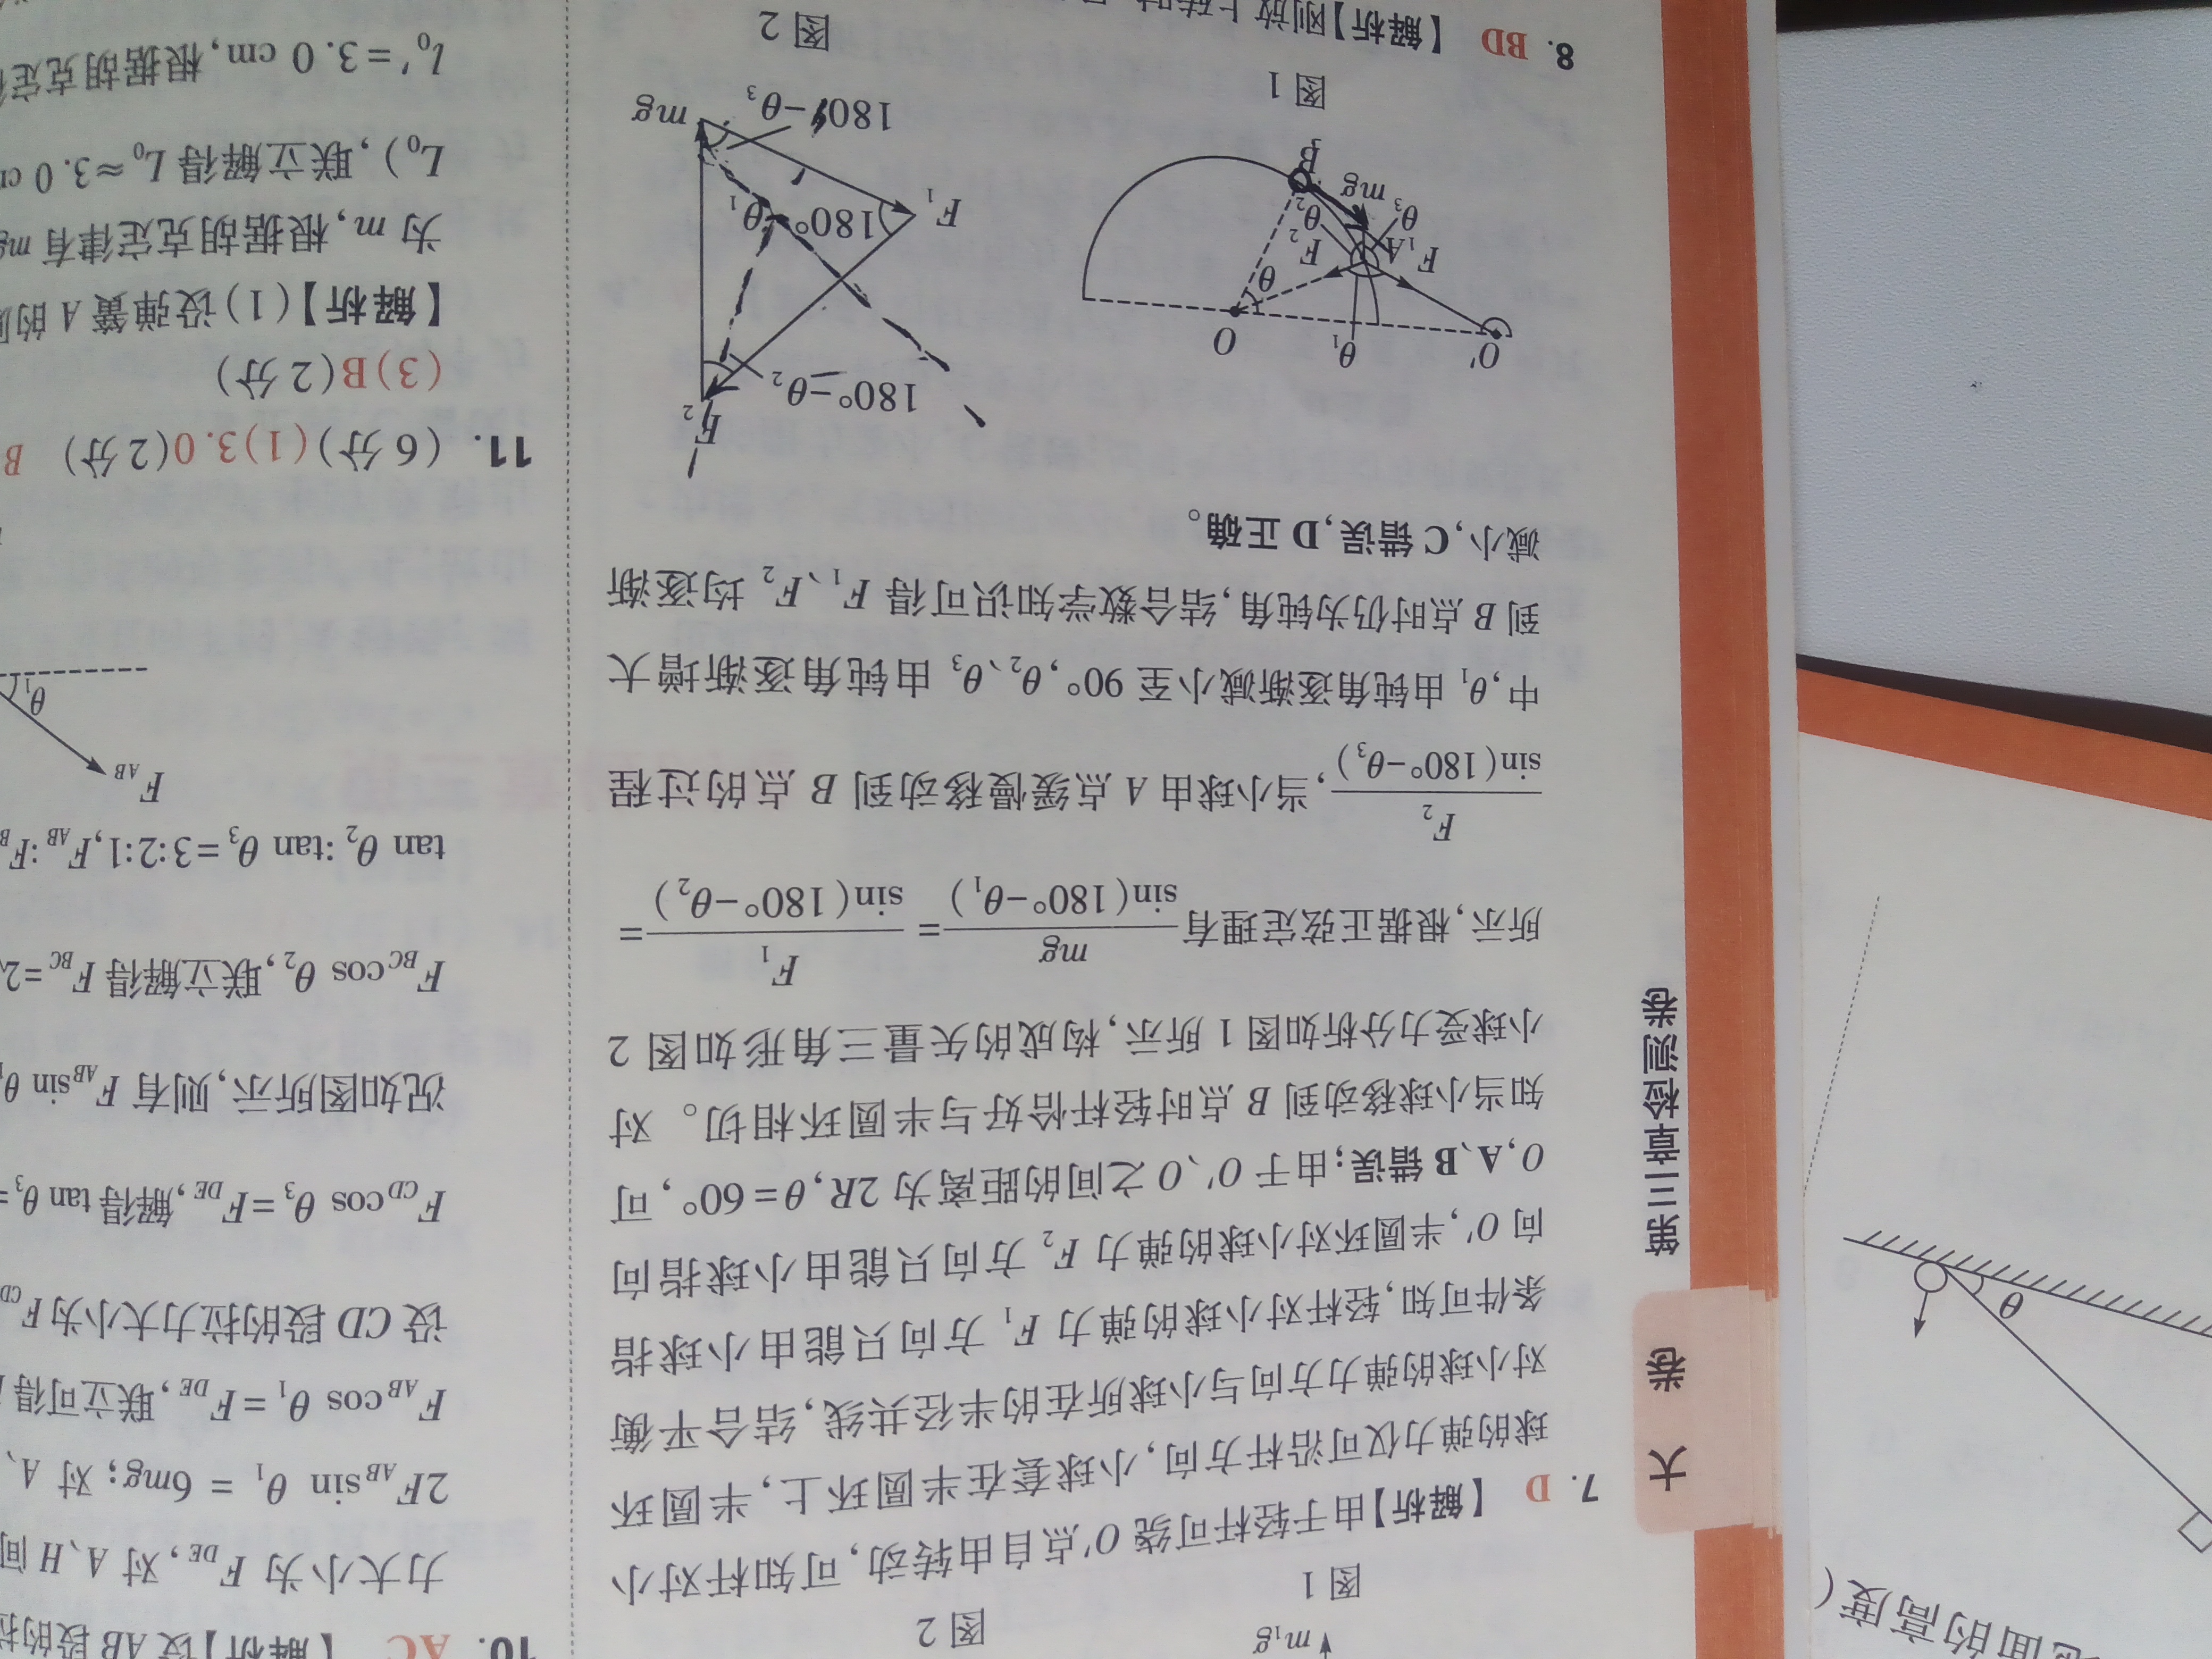 m₁g
图 1
图 2
7. D 【解析】由于轻杆可绕 O′点自由转动,可知杆对小
球的弹力仅可沿杆方向,小球套在半圆环上,半圆环
对小球的弹力方向与小球所在的半径共线,结合平衡
条件可知,轻杆对小球的弹力 F₁ 方向只能由小球指
向 O′,半圆环对小球的弹力 F₂ 方向只能由小球指向
O,A、B 错误;由于 O′、O 之间的距离为 2R,θ=60°,可
知当小球移动到 B 点时轻杆恰好与半圆环相切。对
小球受力分析如图 1 所示,构成的矢量三角形如图 2
所示,根据正弦定理有 mg/sin(180°-θ₁) = F₁/sin(180°-θ₂) =
F₂/sin(180°-θ₃),当小球由 A 点缓慢移动到 B 点的过程
中,θ₁ 由钝角逐渐减小至 90°,θ₂、θ₃ 由钝角逐渐增大
到 B 点时仍为钝角,结合数学知识可得 F₁、F₂ 均逐渐
减小,C 错误,D 正确。
O′
θ₁
O
θ
F₁
A
F₂
θ₃
θ₂
mg
B
图 1
F₂
180°-θ₂
F₁
180°
θ₁
180°-θ₃
mg
图 2
8. BD 【解析】刚放上砖时
10. AC 【解析】设 AB 段的拉
力大小为 F_DE,对 A、H 间
2F_AB sin θ₁ = 6mg;对 A、
F_AB cos θ₁=F_DE,联立可得
设 CD 段的拉力大小为 F_CD
F_CD cos θ₃=F_DE,解得 tan θ₃=
况如图所示,则有 F_AB sin θ₁
F_BC cos θ₂,联立解得 F_BC=2
tan θ₂:tan θ₃=3:2:1,F_AB:F_B
F_AB
θ₁
11. (6 分)(1)3.0(2 分)
(3)B(2 分)
【解析】(1)设弹簧 A 的
为 m,根据胡克定律有 mg
L₀),联立解得 L₀≈3.0 cm
l₀′=3.0 cm,根据胡克定
大 卷
第三章检测卷
地面的高度(
θ